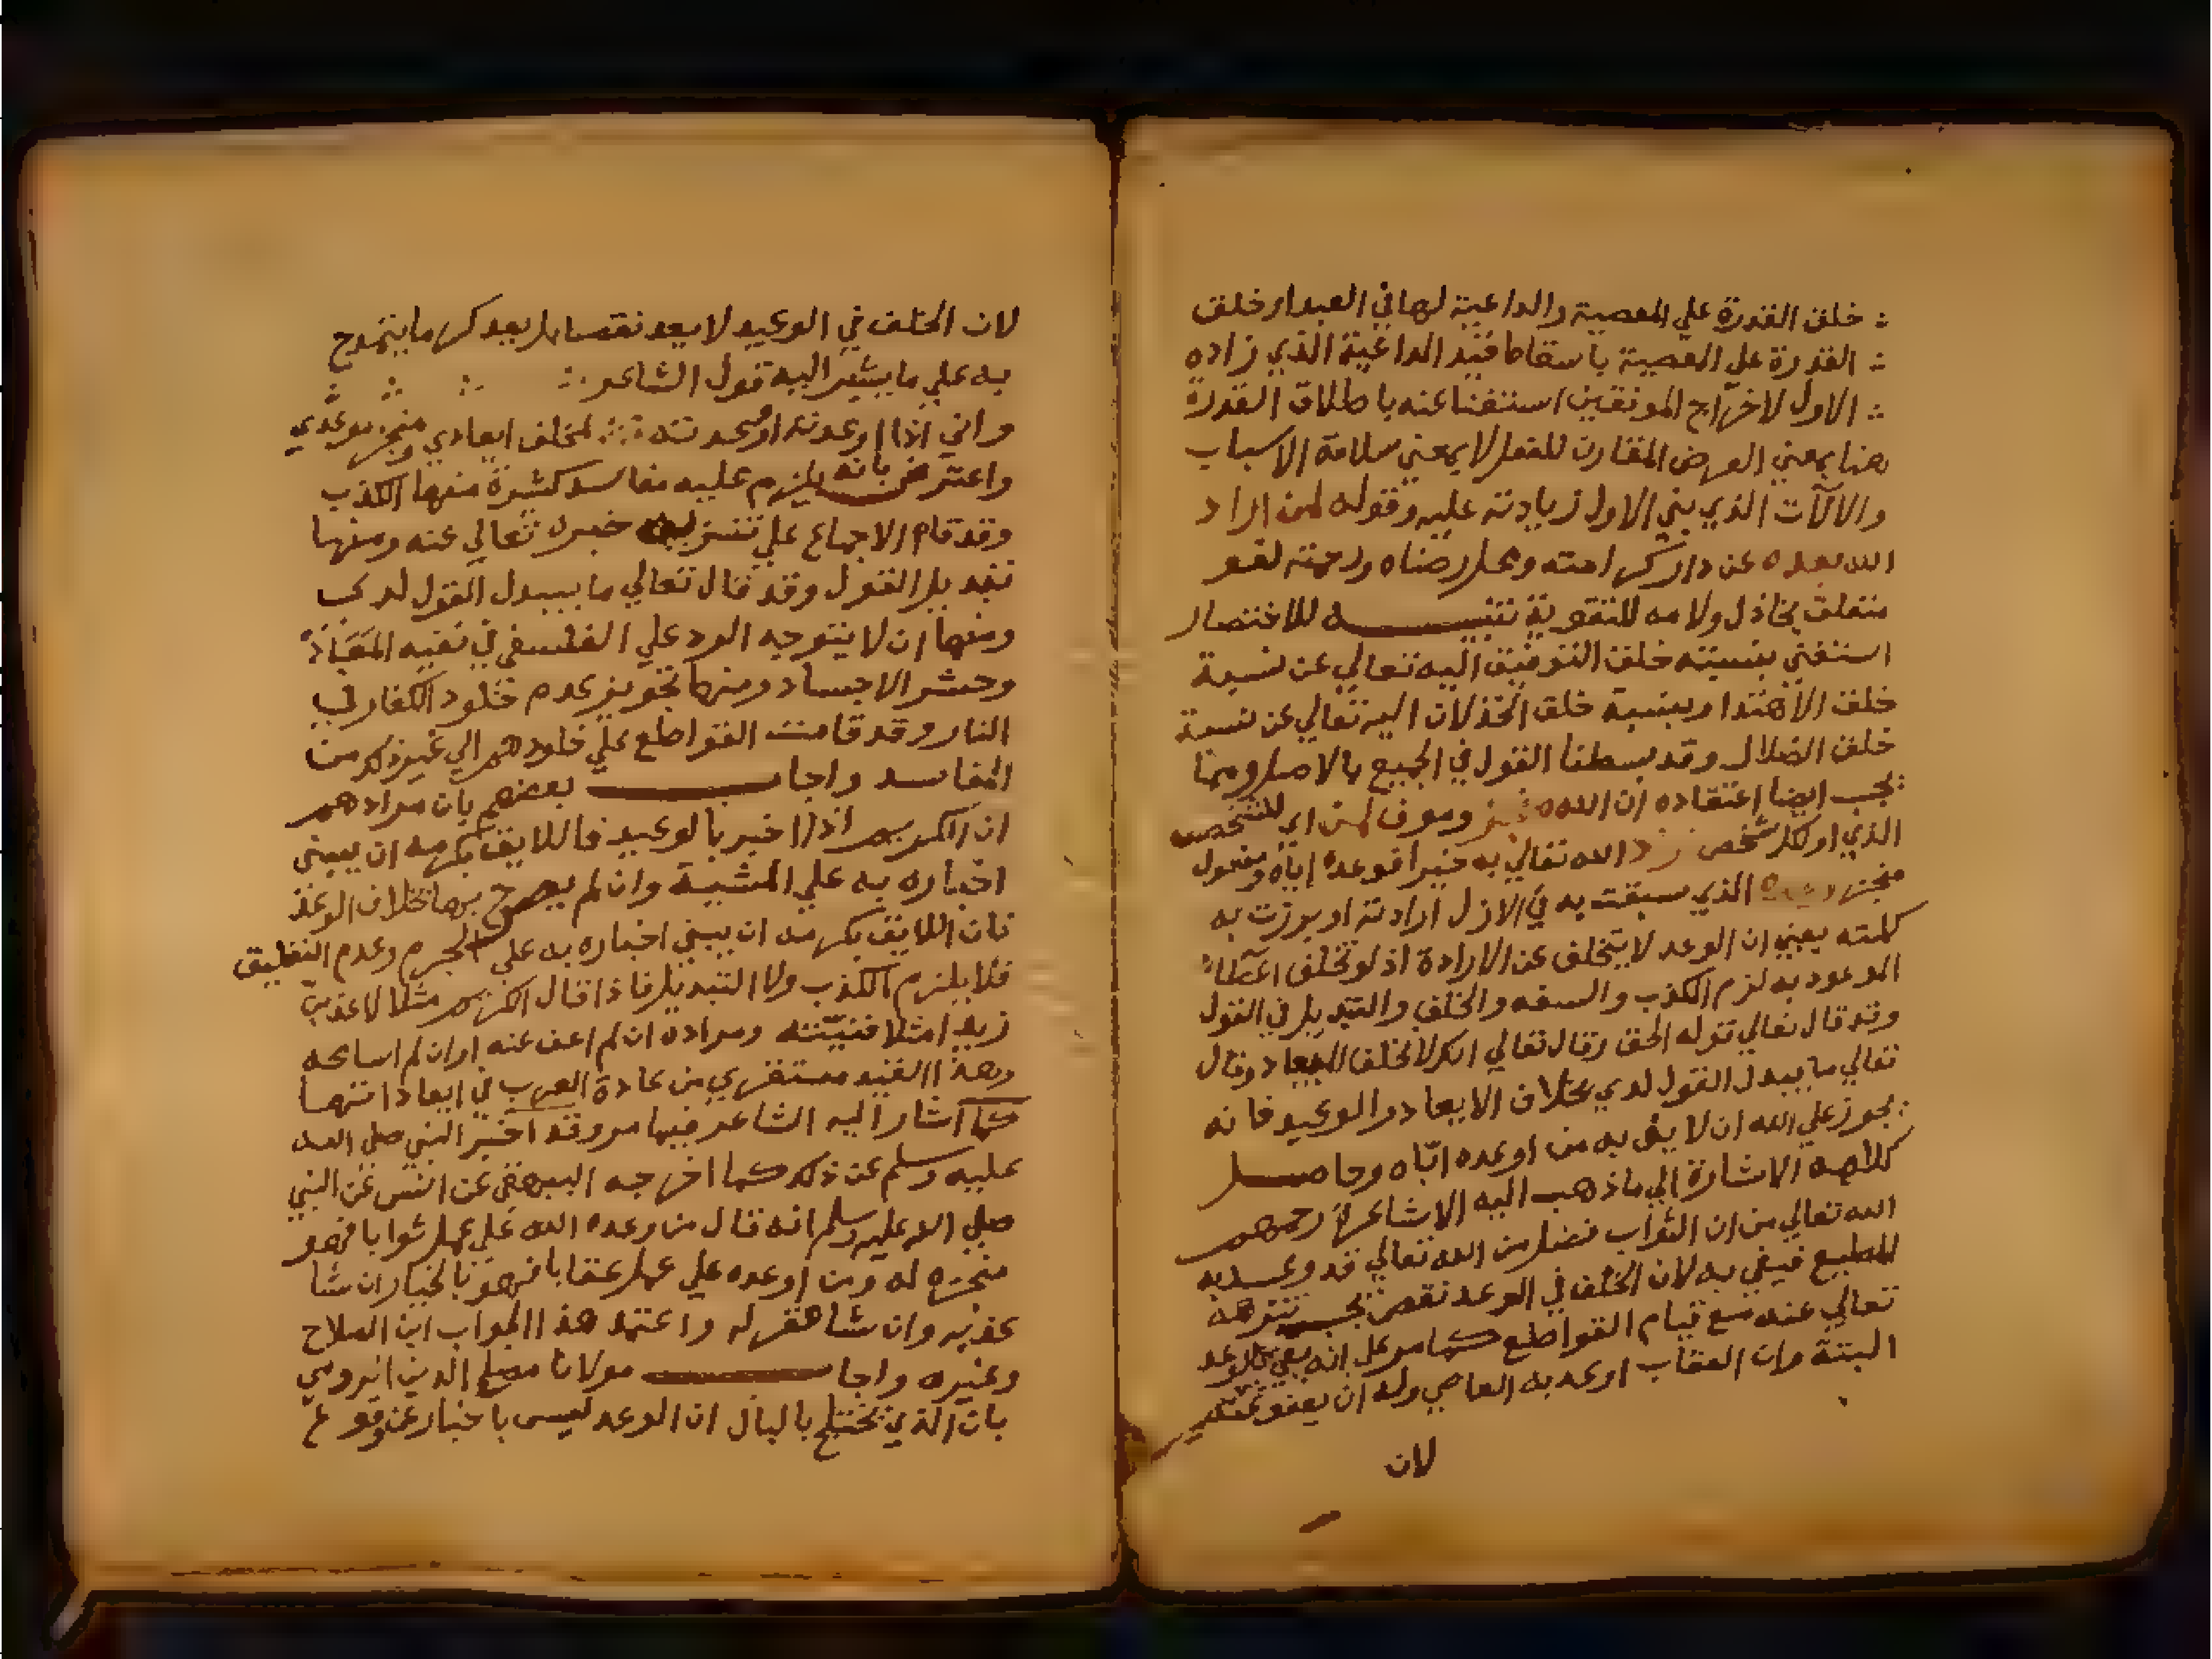 خلق القدرة علي المعصية والداعية لها في العبد او خلق
القدرة علي المعصية باسقاط قيد الداعية الذي زاده
الاول لاخراج الموفقين استغنا عنه باطلاق القدرة
هنا بمعني العرض المقارن للفعل لا بمعني سلامة الاسباب
والالآت الذي بني الاول زيادته عليه وقوله لمن اراد
الله بعده عن دار كرامته ومحل رضاه ورحمته لغو
متعلق بخاذل ولامه للتقوية تنبيه للاختصار
استغني بنسبته خلق التوفيق اليه تعالي عن نسبة
خلق الاهتدا وبنسبة خلق الخذلان اليه تعالي عن نسبة
خلق الضلال وقد بسطنا القول في الجميع بالاصل ومما
يجب ايضا اعتقاده ان الله منجز وموف لمن اي للشخص
الذي او لكل شخص اراد الله تعالي به خيرا فوعده إياه ومفعول
منجز وعده الذي سبقت به في الازل ارادته او برزت به
كلمته يعني ان الوعد لا يتخلف عن الارادة اذ لو تخلف اعطاء
الموعود به لزم الكذب والسفه والخلف والتبديل في القول
وقد قال تعالي قوله الحق وقال تعالي انك لا تخلف الميعاد وقال
تعالي ما يبدل القول لدي بخلاف الايعاد والوعيد فانه
يجوز علي الله ان لا يفي به من اوعده اتاه وحاصل
كلامه الاشارة الي ما ذهب اليه الاشاعرة رحمهم
الله تعالي من ان الثواب فضل من الله تعالي قد وعد به
المطيع فيفي به لان الخلف في الوعد نقص يجب تنزهه
تعالي عنه مع قيام القواطع كما مر علي انه يفي بالوعد
البتة وان العقاب اوعد به العاصي وله ان يعفو عنه
لان
لان الخلف في الوعيد لا يعد نقصا بل يعد كرما يتمدح
به علي ما يشير اليه قول الشاعر
واني اذا اوعدته او وعدته لمخلف ايعادي ومنجز موعدي
واعترض بانه يلزم عليه مفاسد كثيرة منها الكذب
وقد قام الاجماع علي تنزيه خبره تعالي عنه ومنها
تبديل القول وقد قال تعالي ما يبدل القول لدي
ومنها ان لا يتوجه الرد علي الفلسفي في نفيه المعَاد
وحشر الاجساد ومنها تجويز عدم خلود الكفار في
النار وقد قامت القواطع علي خلودهم الي غير ذلك من
المفاسد واجاب بعضهم بان مرادهم
ان الكريم اذا اخبر بالوعيد فاللايق بكرمه ان يبني
اخباره به علي المشية وان لم يصرح بها بخلاف الوعد
فان اللايق بكرمه ان يبني اخباره به علي الجزم وعدم التعليق
فلا يلزم الكذب ولا التبديل فاذا قال الكريم مثلا لاعذبن
زيدا مثلا فنيّته ومراده ان لم اعف عنه او ان لم اسامحه
وهذا القيد مستقري من عادة العرب في ايعاداتها
كما اشار اليه الشاعر فيما مر وقد اخبر النبي صلي الله
عليه وسلم عن ذلك كما اخرجه البيهقي عن انس عن النبي
صلي الله عليه وسلم انه قال من وعده الله علي عمل ثوابا فهو
منجزه له ومن اوعده علي عمل عقابا فهو بالخيار ان شا
عذبه وان شا غفر له واعتمد هذا الجواب ابن الصلاح
وغيره واجاب مولانا مصلح الدين
بان الذي يختلج بالبال ان الوعد ليس باخبار عن وقوع